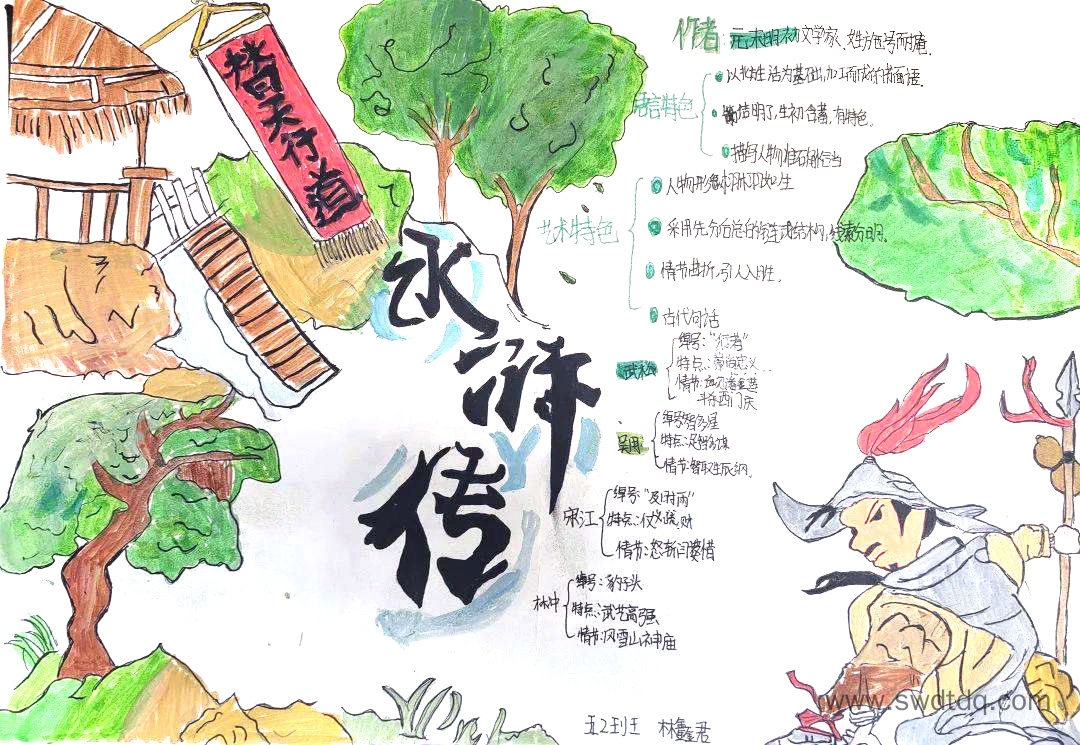 替天行道
水浒传
作者 元末明初文学家、姓施、号耐庵.
语言特色
以北生活为基础,加工而成的书面语.
简洁明了,生初含蓄,有特色.
描写人物准确恰当
艺术特色
人物形象栩栩如生
采用先分后总的连式结构,线索分明.
情节曲折,引人入胜.
古代句话
武松
绰号:“行者”
特点:崇尚忠义
情节:血刃潘金莲
斗杀西门庆
吴用
绰号:智多星
特点:足智多谋
情节:智取生辰纲.
宋江
绰号:“及时雨”
特点:仗义疏财
情节:怒斩闫婆惜
林冲
绰号:豹子头
特点:武艺高强
情节:风雪山神庙
www.swdtdq.com
五2班 林鑫君